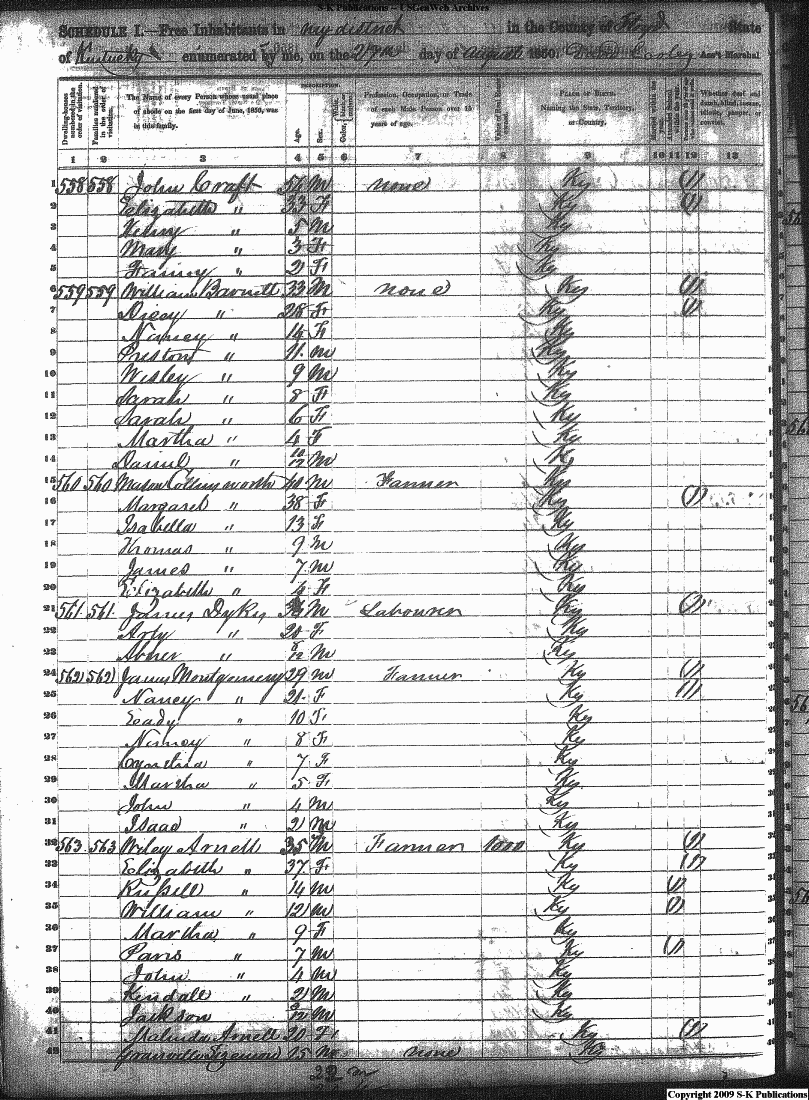 S-K Publications - USGenWeb Archives
SCHEDULE I.—Free Inhabitants in my district in the County of Floyd State
of Kentucky enumerated by me, on the 27th day of August 1850. Ass't Marshal
Dwelling-houses numbered in the order of visitation. Families numbered in the order of visitation. The Name of every Person whose usual place of abode on the first day of June, 1850, was in this family. DESCRIPTION. Age. Sex. Color, Profession, Occupation, or Trade of each Male Person over 15 years of age. Value of Real Estate owned. PLACE OF BIRTH. Naming the State, Territory, or Country. Whether deaf and dumb, blind, insane, idiotic, pauper, or convict.
1 2 3 4 5 6 7 8 9 10 11 12 13
1 558 558 John Craft 54 M none Ky (1)
2 Elizabeth " 33 F Ky (1)
3 Henry " 5 M Ky
4 Mary " 3 F Ky
5 Fanny " 2 F Ky
6 559 559 William Barnett 33 M none Ky (1)
7 Dicey " 28 F Ky (1)
8 Nancy " 14 F Ky
9 Preston " 11 M Ky
10 Wesley " 9 M Ky
11 Sarah " 8 F Ky
12 Sarah " 6 F Ky
13 Martha " 4 F Ky
14 Daniel " 10/12 M Ky
15 560 560 Mason Collinsworth 40 M Farmer Ky
16 Margaret " 38 F Ky (1)
17 Isabella " 13 F Ky
18 Thomas " 9 M Ky
19 James " 7 M Ky
20 Elizabeth " 4 F Ky
21 561 561 James Dykes M Labourer Ky (1)
22 Arty " 20 F Ky
23 Abner " 8/12 M Ky
24 562 562 James Montgomery 29 M Farmer Ky (1)
25 Nancy " 21 F Ky (1)
26 Eady " 10 F Ky
27 " 8 F Ky
28 Cynthia " 7 F Ky
29 Martha " 5 F Ky
30 John " 4 M Ky
31 Isaac " 2 M Ky
32 563 563 Wiley Arnett 35 M Farmer 1000 Ky (1)
33 Elizabeth " 37 F Ky (1)
34 Russell " 14 M Ky (1)
35 William " 12 M Ky (1)
36 Martha " 9 F Ky
37 Paris " 7 M Ky (1)
38 John " 4 M Ky
39 Kendall " 2 M Ky
40 Jackson M Ky
41 Malinda Arnett 20 F Ky (1)
42 15 M none Ky
22 m
Copyright 2009 S-K Publications